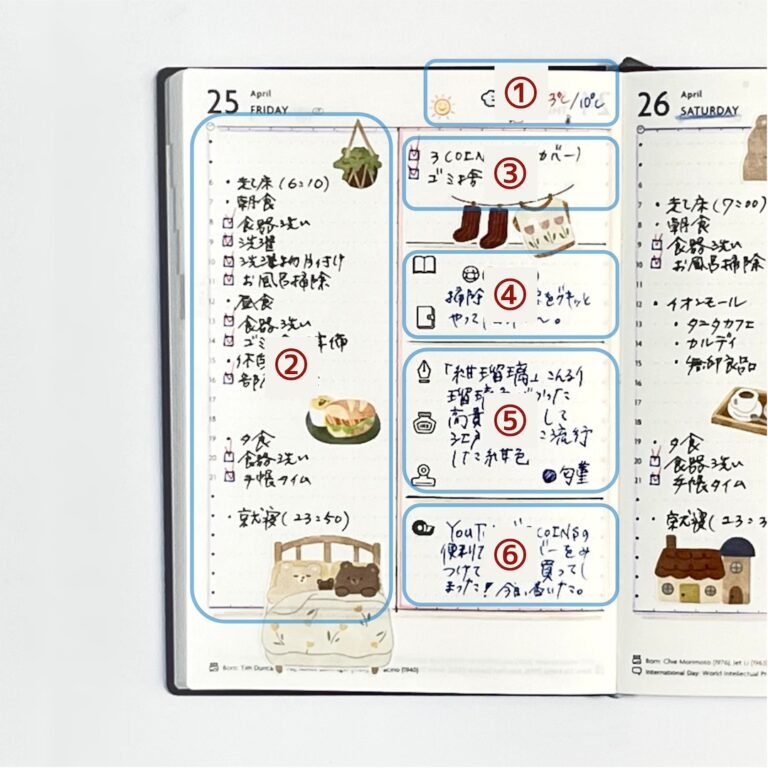 25 April FRIDAY
①
3℃/10℃
②
・起床(6:10)
・朝食
食器洗い
洗濯
洗濯物片付け
お風呂掃除
・昼食
食器洗い
ゴミ
・夕食
食器洗い
手帳タイム
・就寝(23:50)
③
3COIN カバー)
ゴミ捨
④
掃除
やって
⑤
「紺瑠璃」こんるり
瑠璃
高貴 して
江戸 に流行
した紺色
⑥
YouT COINSの
便利 バーをみ
つけて 買ってし
まった!今日届いた。
Born: Tim Dunca
cino (1940)
26 April SATURDAY
・起床(7:00)
・朝食
食器洗い
お風呂掃除
・イオンモール
・タニタカフェ
・カルディ
・無印良品
・夕食
食器洗い
手帳タイム
・就寝(23:3
Born: Chie Morimoto (1976), Jet Li (1963
International Day: World Intellectual Pr